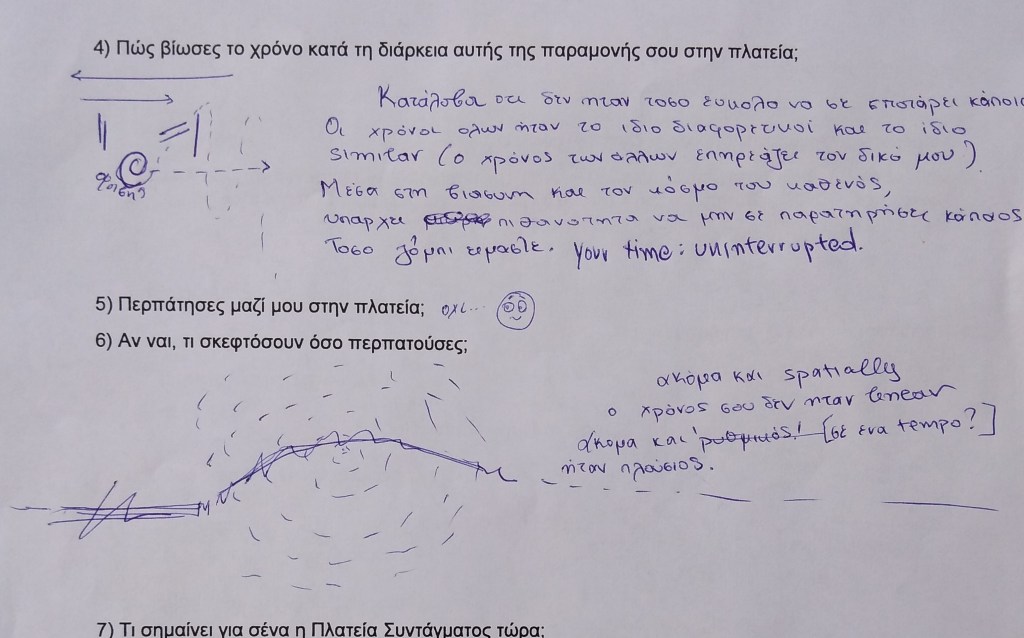 4) Πώς βίωσες το χρόνο κατά τη διάρκεια αυτής της παραμονής σου στην πλατεία;
Κατάλαβα οτι δεν ηταν τοσο ευκολο να σε σποτάρει κάποιο
Οι χρόνοι ολων ήταν το ιδιο διαφορετικοί και το ίδιο
similar (ο χρόνος των άλλων επηρεάζει τον δικό μου)
Μέσα στη βιασυνη και τον κόσμο του καθενός,
υπαρχει πιθανοτητα να μην σε παρατηρήσει κάποιος
Τοσο χύμα είμαστε. your time: uninterrupted.
5) Περπάτησες μαζί μου στην πλατεία; οχι...
6) Αν ναι, τι σκεφτόσουν όσο περπατούσες;
ακόμα και spatially
ο χρόνος σου δεν ηταν linear
άκομα και 'ρυθμικός! [σε ενα tempo?]
ήταν πλούσιος.
7) Τι σημαίνει για σένα η Πλατεία Συντάγματος τώρα;